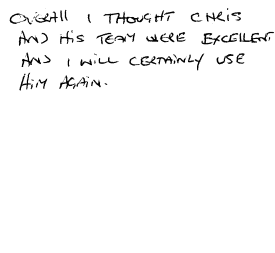 OVERALL I THOUGHT CHRIS
AND HIS TEAM WERE EXCELLENT
AND I WILL CERTAINLY USE
HIM AGAIN.